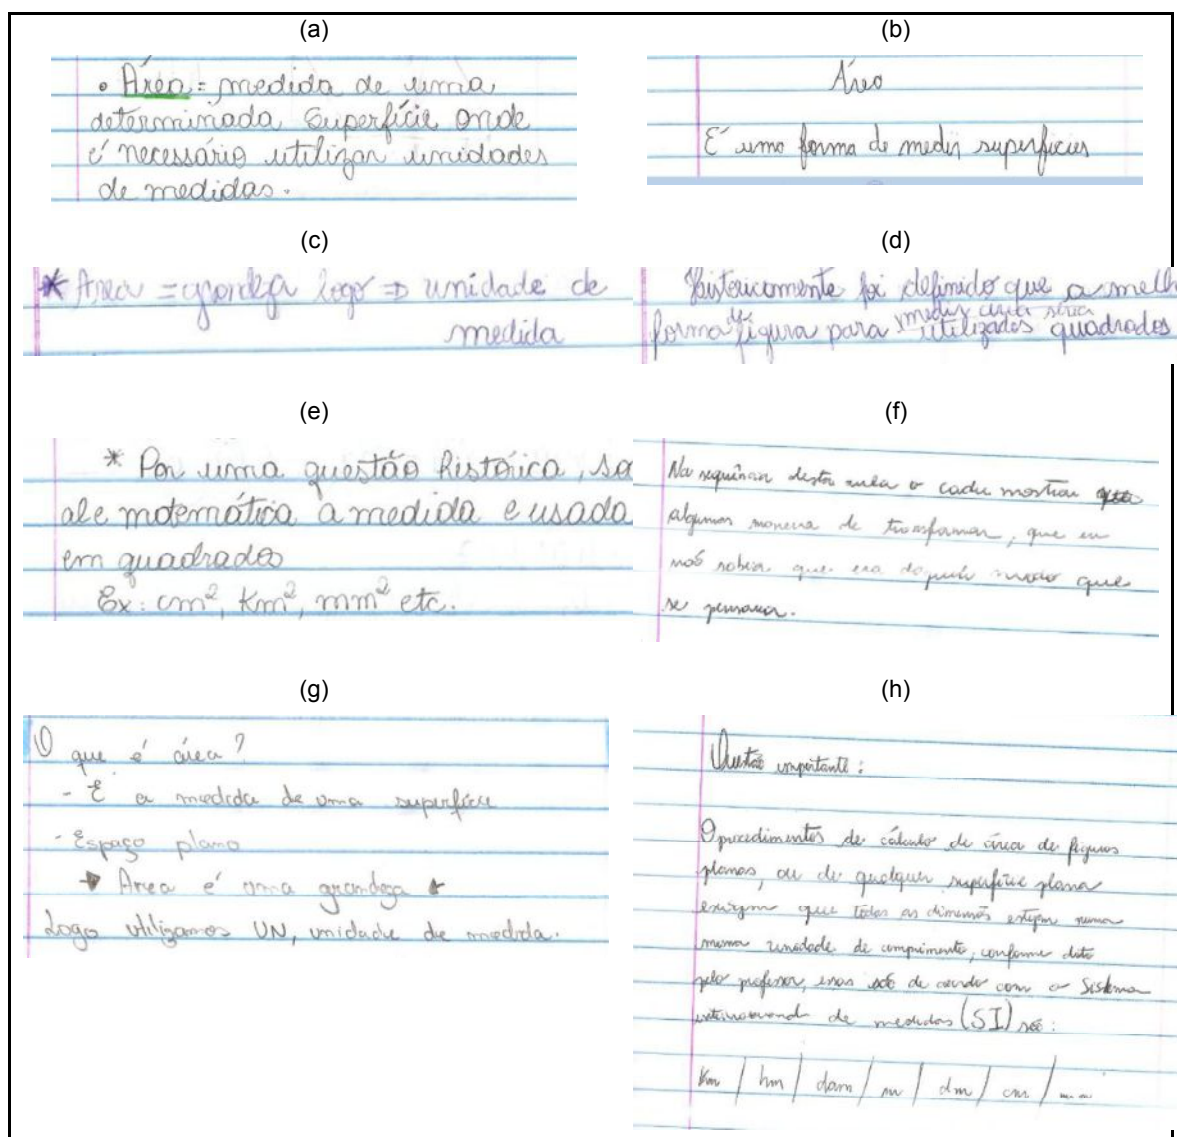 (a)
• Área = medida de uma
determinada superfície onde
é necessário utilizar unidades
de medidas.
(b)
Área
É uma forma de medir superfícies
(c)
* Area = grandeza logo ⇒ unidade de
medida
(d)
Historicamente foi definido que a melh
forma de figura para medir área seria
utilizados quadrados
(e)
* Por uma questão histórica, sa
ale matemática a medida e usada
em quadrados
Ex: cm², Km², mm² etc.
(f)
Na sequência desta aula o cadu mostrou
algumas maneira de transformar, que eu
não sabia que era daquele modo que
se pensava.
(g)
O que é área?
- É a medida de uma superfície
- Espaço plano
Area é uma grandeza
Logo utilizamos UN, unidade de medida.
(h)
Questão importante:
O procedimentos de cálculo de área de figuras
planas, ou de qualquer superfície plana
exigem que todas as dimensões estejam numa
mesma unidade de comprimento, conforme dito
pelo professor, essas são de acordo com o Sistema
internacional de medidas (SI) são:
Km / hm / dam / m / dm / cm / mm